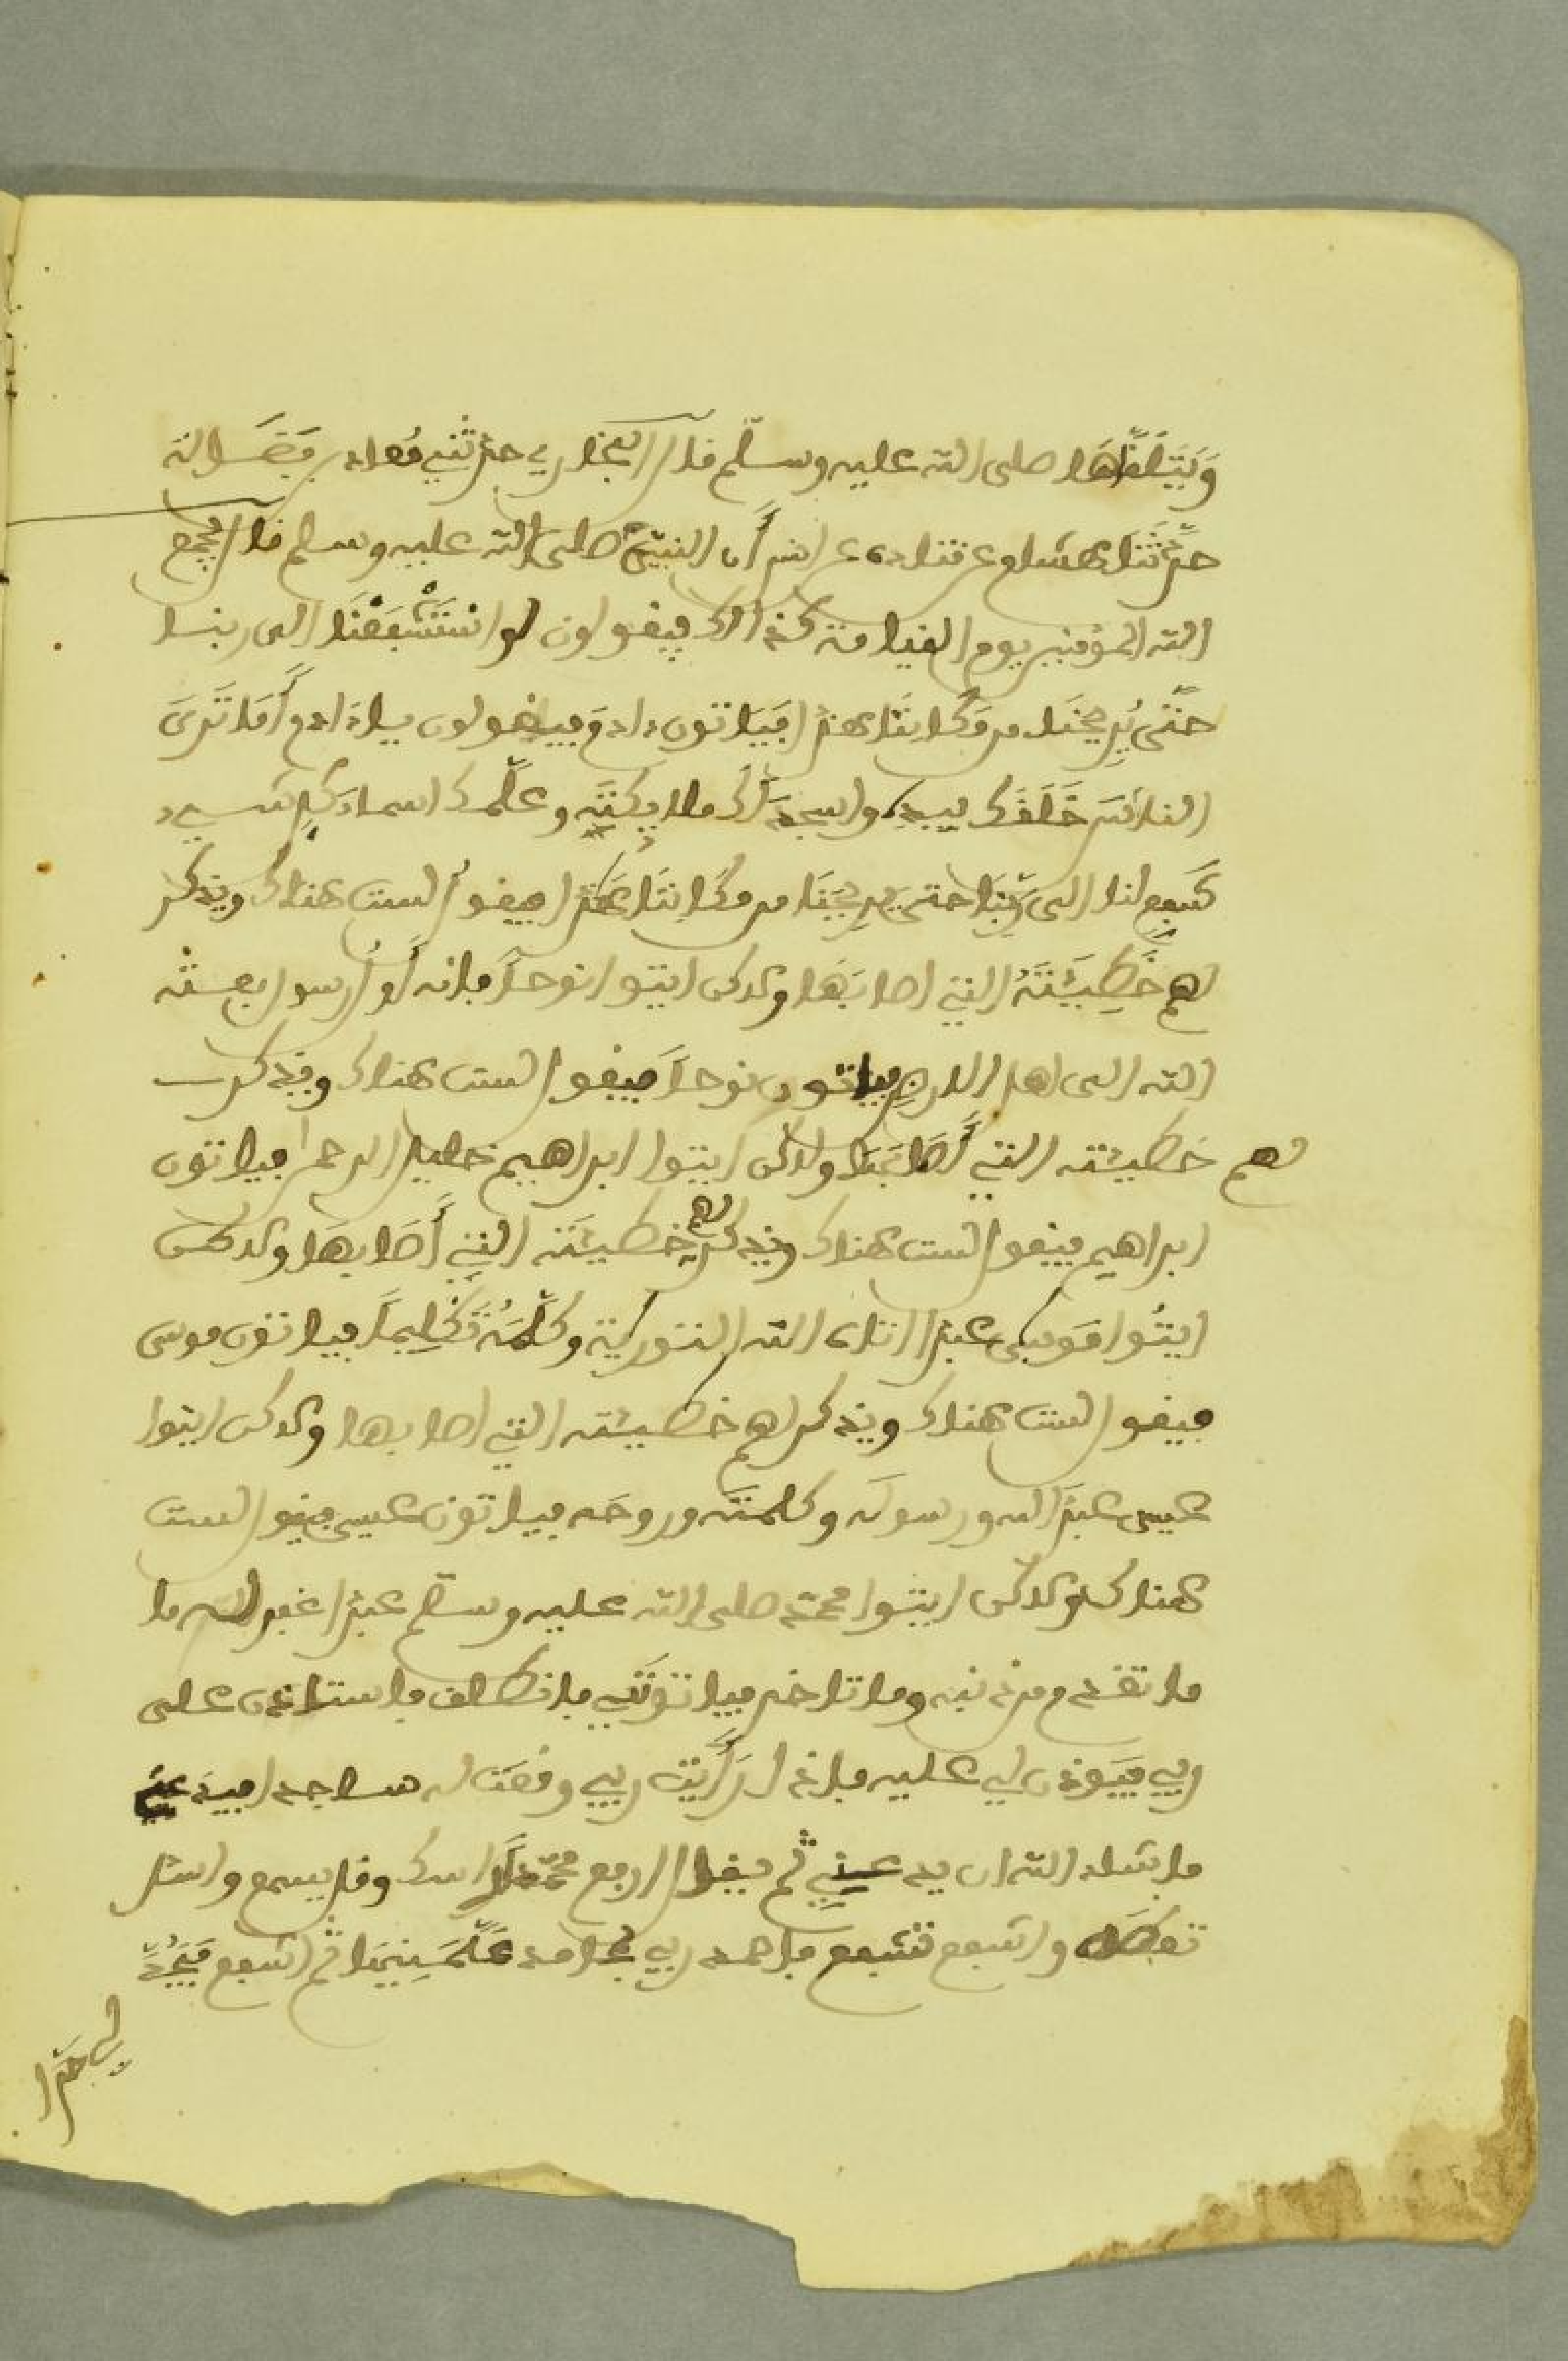 وَيَتَلَقَّاهَا صلى الله عليه وسلّم قال البخاري حدّثني مُعاذ بن فَضَالة
حدّثنا هشام عن قتادة عن انس أَن النبيّ صلى الله عليه وسلم قال يجمع
الله المؤمنين يوم القيامة كذالك فيقولون لو اسْتَشْفَعْنَا الى ربنا
حتّى يُرِيحنَا من مكاننا هذا فَيَاتون ءادم فيقولون ياءادم أَمَا تَرَى
الناسَ خَلَقَك بيده واسجد لك ملائكتَه وعلّمك اسماء كلِ شيء
شَفِع لنا الى ربّنا حتى يرِيحَنَا من مكاننَا هَذا فيقول لست هناك ويذكر
لهم خَطِيئَتَهُ التي اصابَهَا ولاكن ايتوا نوحاً فانه أول رسول بعثه
الله الى اهل الارضِ فياتون نوحاً فيقول لست هناك ويذكر
لهم خطيئته التي أَصَابَهَا ولاكن ايتوا ابراهيم خليل الرحمن فياتون
ابراهيم فيقول لست هناك ويذكر لهم خطيئَته التي أَصَابهَا ولاكن
ايتُوا مُوسى عبدا اتاه الله التورية وكلّمَهُ تَكْلِيماً فياتون موسى
فيقول لست هناك ويذكر لهم خطيئته التي اصابها ولاكن ايتوا
عيسى عبدَ الله ورسولَه وكلمتَه وروحَه فياتون عيسى فيقول لست
هناك ولاكن ايتوا محمّد صلى الله عليه وسلّم عبدا غفر الله ما
ما تقدم من ذنبه وما تاخر فياتونَنِي فانطلق فاستاذن على
ربي فيَوذن لي عليه فاذا رَأَيْت ربي وقعَت له ساجدا فيدعني
ما شاء الله ان يدعني ثم يقال ارفع محمّد راسك وقل يسمع واسئل
تعطه واشفع تشفع فاحمد ربي بمحامد عَلّمَنِيهَا ثم اشفع فَيَحُدّ
لي حَدّا